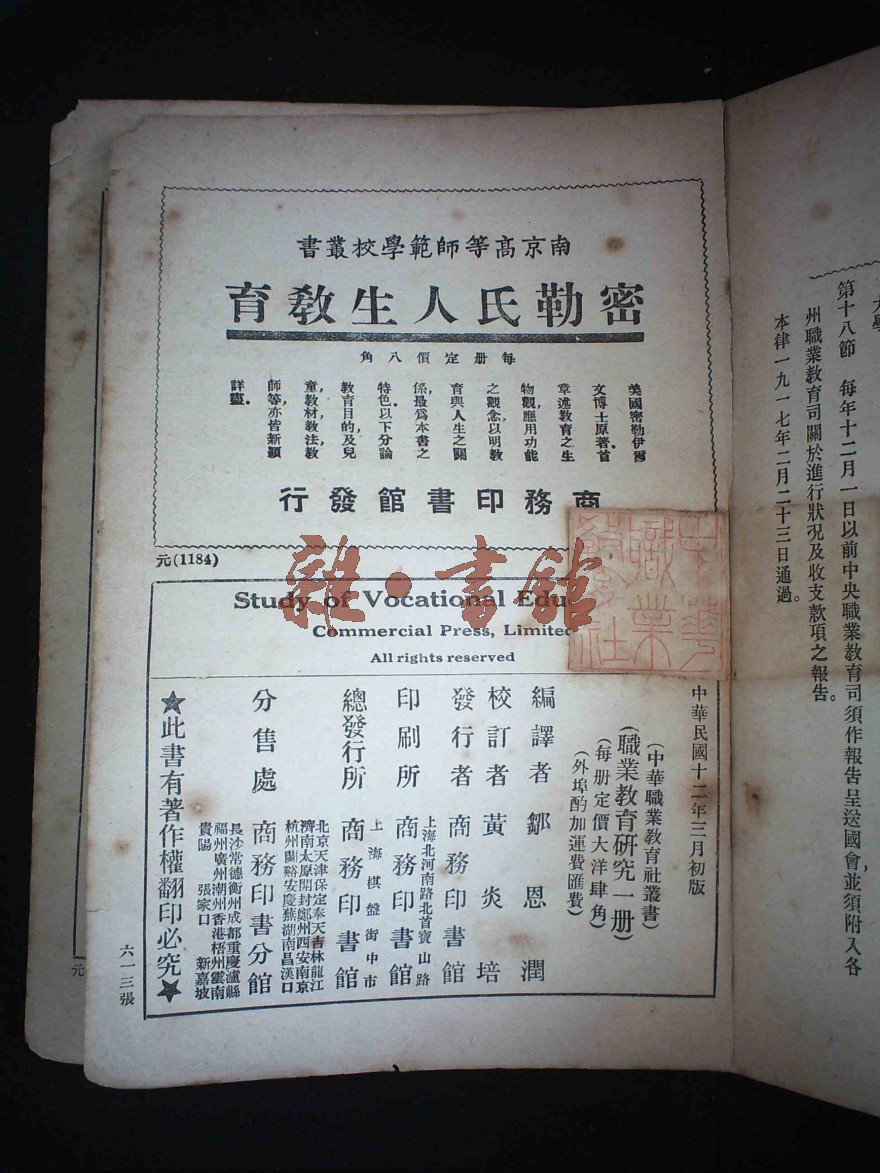 南京高等師範學校叢書
密勒氏人生教育
每册定價八角
美國密勒伊爾
文博士原著。首
章述教育之生
物觀,應用功能
之觀念,以明教
育與人生之關
係,最爲本書之
特色。以下分論
教育目的,及兒
童,教材,教法,教
師等,亦皆新穎
詳盡。
商務印書館發行
元(1184)
Study of Vocational Edu
Commercial Press, Limited
All rights reserved
中華民國十二年三月初版
(中華職業教育社叢書)
(職業教育研究一册)
(每册定價大洋肆角)
(外埠酌加運費匯費)
編譯者 鄒恩潤
校訂者 黃炎培
發行者 商務印書館
上海北河南路北首寶山路
印刷所 商務印書館
上海棋盤街中市
總發行所 商務印書館
北京天津保定奉天吉林龍江
濟南太原開封鄭州西安南京
杭州蘭谿安慶蕪湖南昌漢口
分售處 商務印書分館
長沙常德衡州成都重慶瀘縣
福州廣州潮州香港梧州雲南
貴陽 張家口 新嘉坡
★此書有著作權翻印必究★
六一三張
元
第十八節 每年十二月一日以前中央職業教育司須作報告呈送國會,並須附入各
州職業教育司關於進行狀況及收支款項之報告。
本律一九一七年二月二十三日通過。
中華
職業
教育社
雜·書館